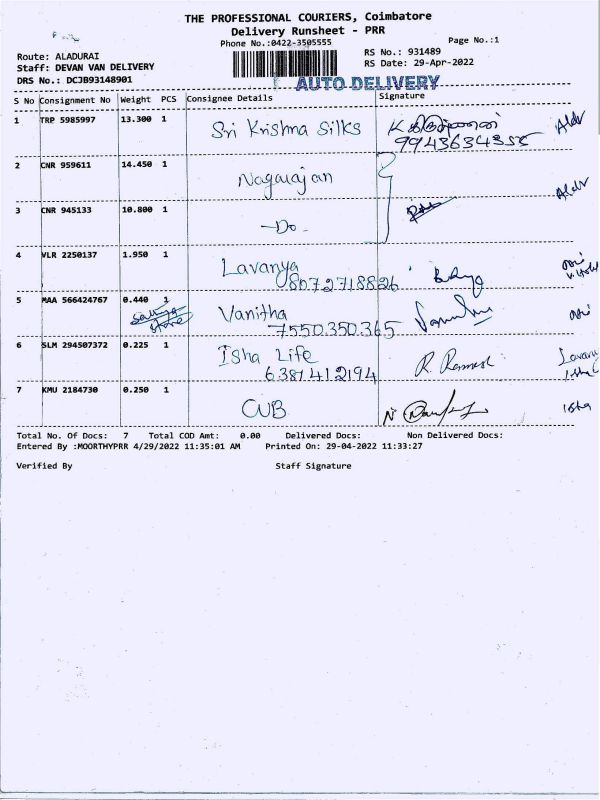 THE PROFESSIONAL COURIERS, Coimbatore
Delivery Runsheet - PRR
Phone No.:0422-3505555
Page No.:1
Route: ALADURAI
RS No.: 931489
Staff: DEVAN VAN DELIVERY
RS Date: 29-Apr-2022
DRS No.: DCJB93148901
AUTO DELIVERY
S No Consignment No Weight PCS Consignee Details Signature
1 TRP 5985997 13.300 1 Sri Krishna Silks
9943634355
2 CNR 959611 14.450 1 Nagarajan
3 CNR 945133 10.800 1 -Do-
4 VLR 2250137 1.950 1 Lavanya
8072718826
5 MAA 566424767 0.440 1 Vanitha
7550350365
6 SLM 294507372 0.225 1 Isha Life R. Ramesh
6381412194
7 KMU 2184730 0.250 1 CUB Isha
Total No. Of Docs: 7 Total COD Amt: 0.00 Delivered Docs: Non Delivered Docs:
Entered By :MOORTHYPRR 4/29/2022 11:35:01 AM Printed On: 29-04-2022 11:33:27
Verified By Staff Signature